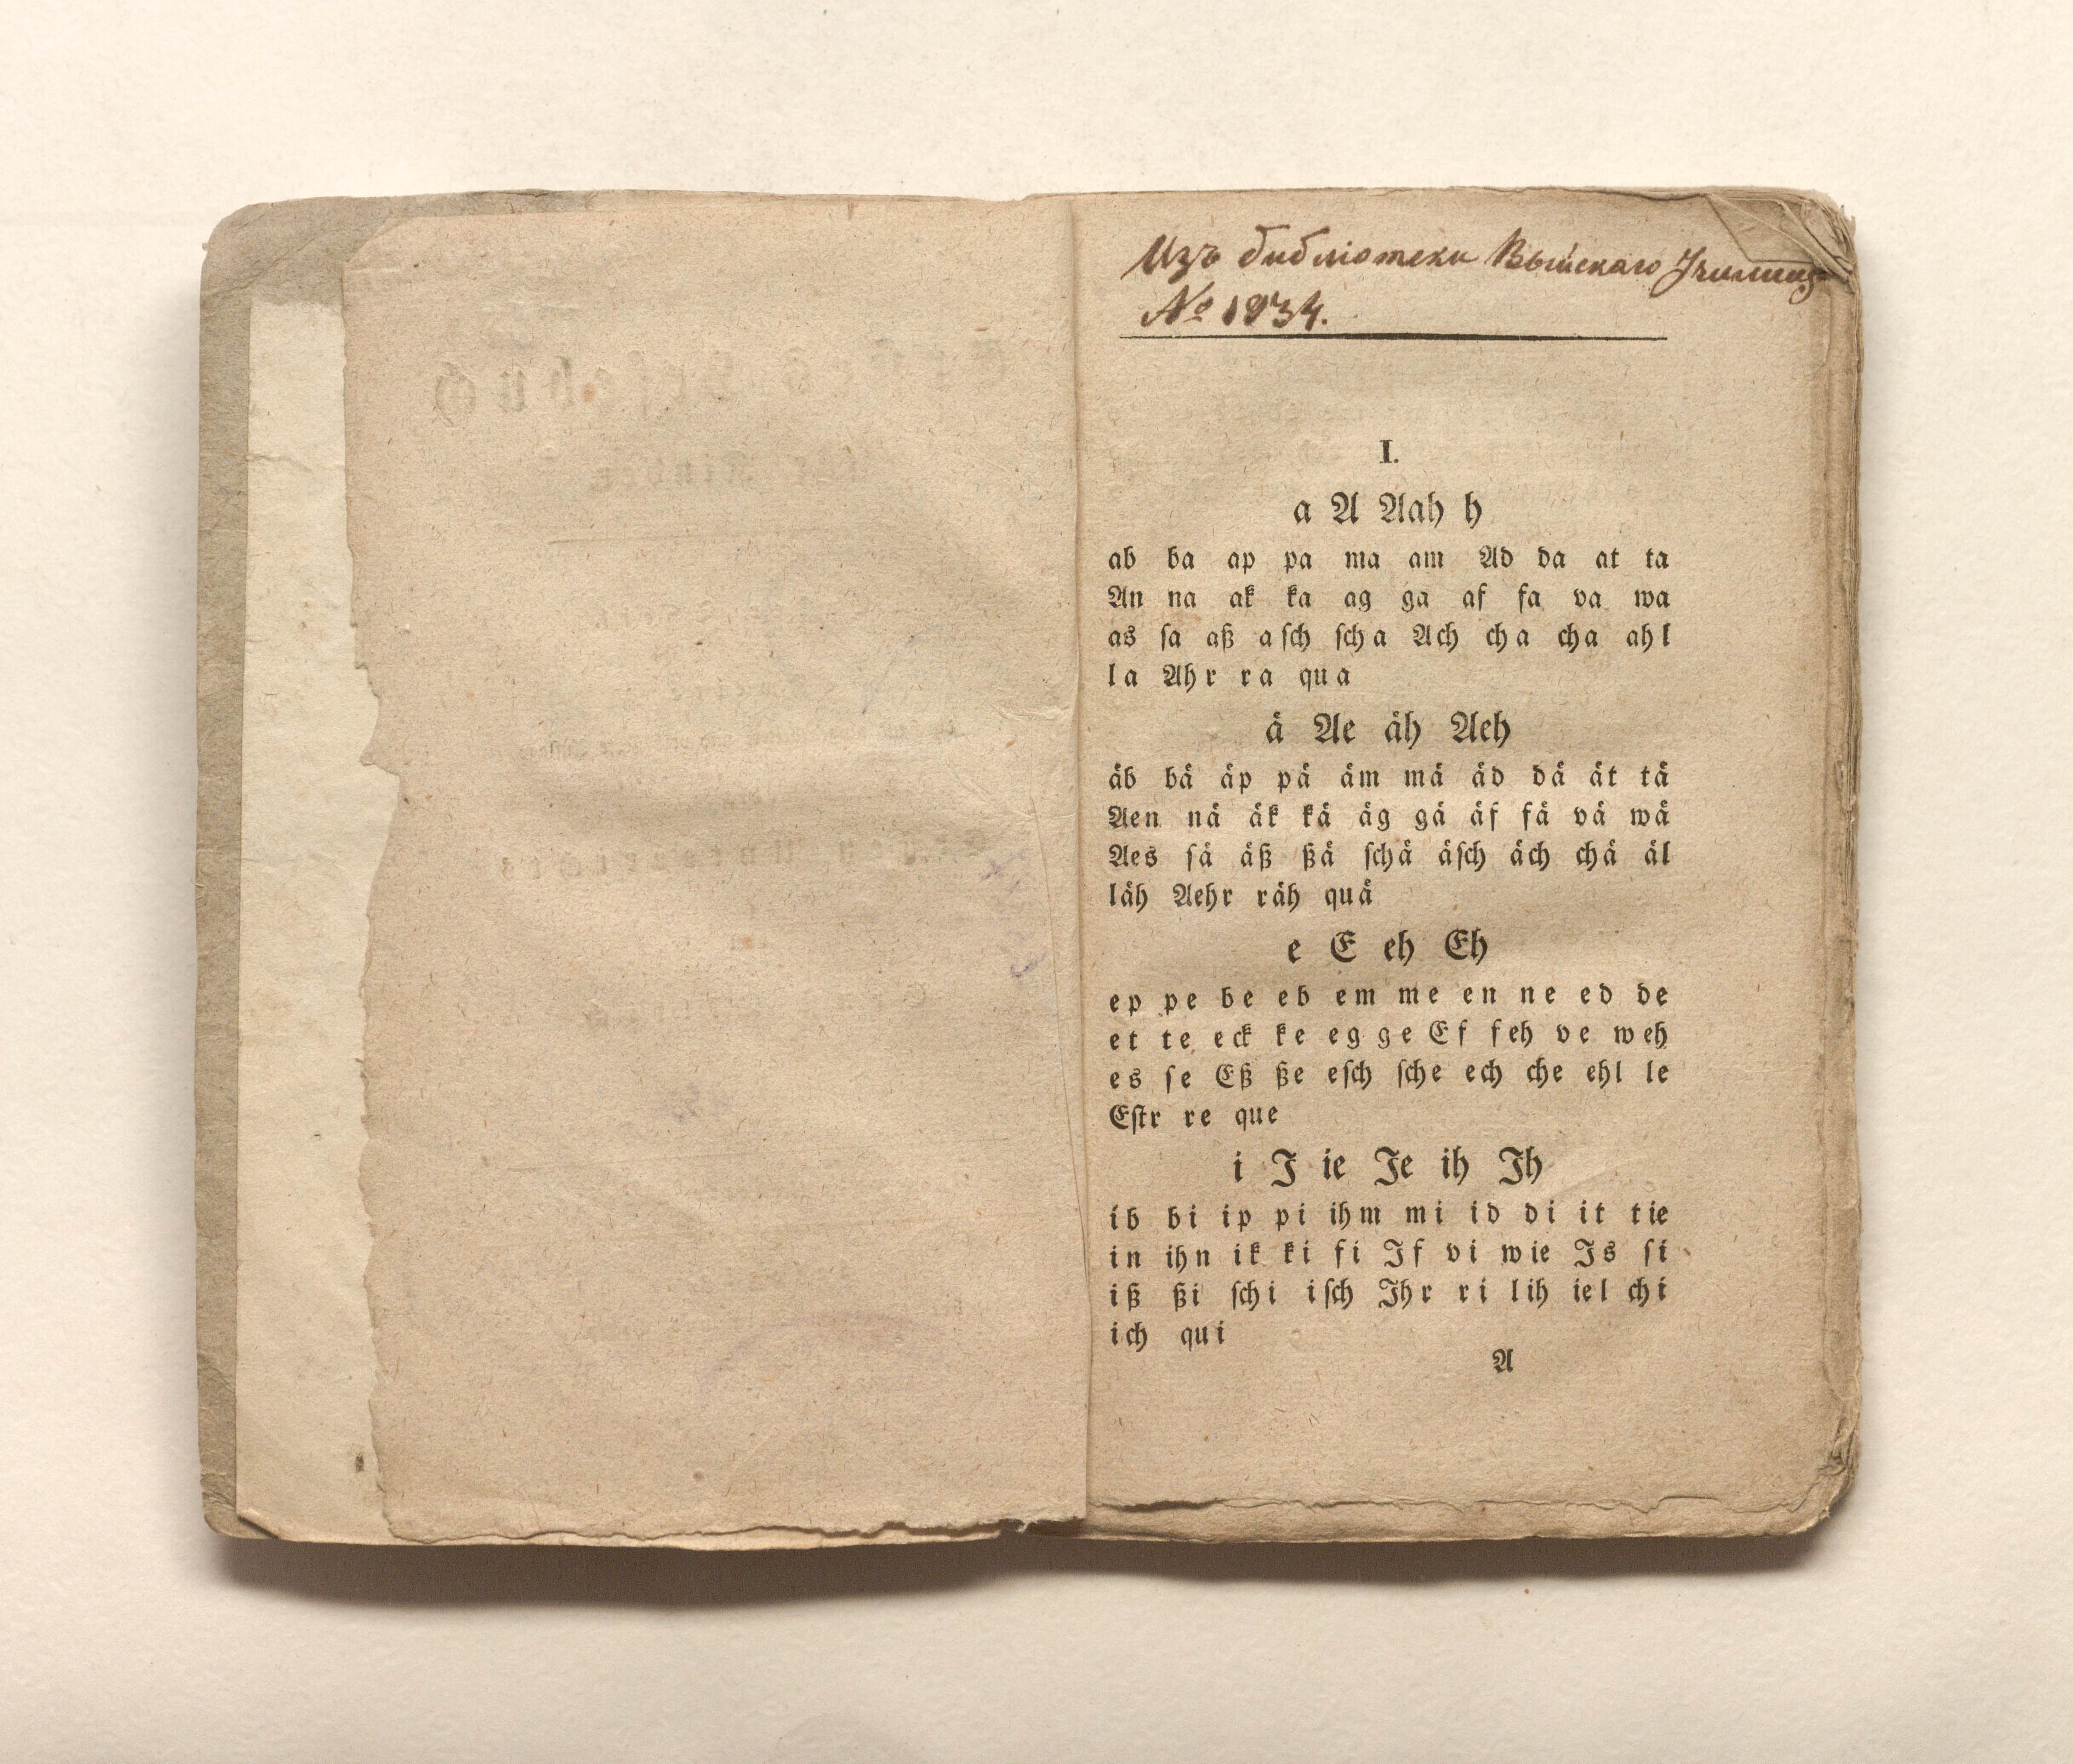 Изъ библіотеки Выйскаго Училища
№ 1934.
I.
a A Aah h
ab ba ap pa ma am Ad da at ta
An na ak ka ag ga af fa va wa
as ſa aß aſch ſcha Ach cha cha ahl
la Ahr ra qua
aͤ Ae aͤh Aeh
aͤb baͤ aͤp paͤ aͤm maͤ aͤd daͤ aͤt taͤ
Aen naͤ aͤk kaͤ aͤg gaͤ aͤf faͤ vaͤ waͤ
Aes ſaͤ aͤß ßaͤ ſchaͤ aͤſch aͤch chaͤ aͤl
laͤh Aehr raͤh quaͤ
e E eh Eh
ep pe be eb em me en ne ed de
et te eck ke eg ge Ef feh ve weh
es ſe Eß ße eſch ſche ech che ehl le
Eſtr re que
i J ie Je ih Jh
ib bi ip pi ihm mi id di it tie
in ihn ik ki fi Jf vi wie Js ſi
iß ßi ſchi iſch Jhr ri lih iel chi
ich qui
A